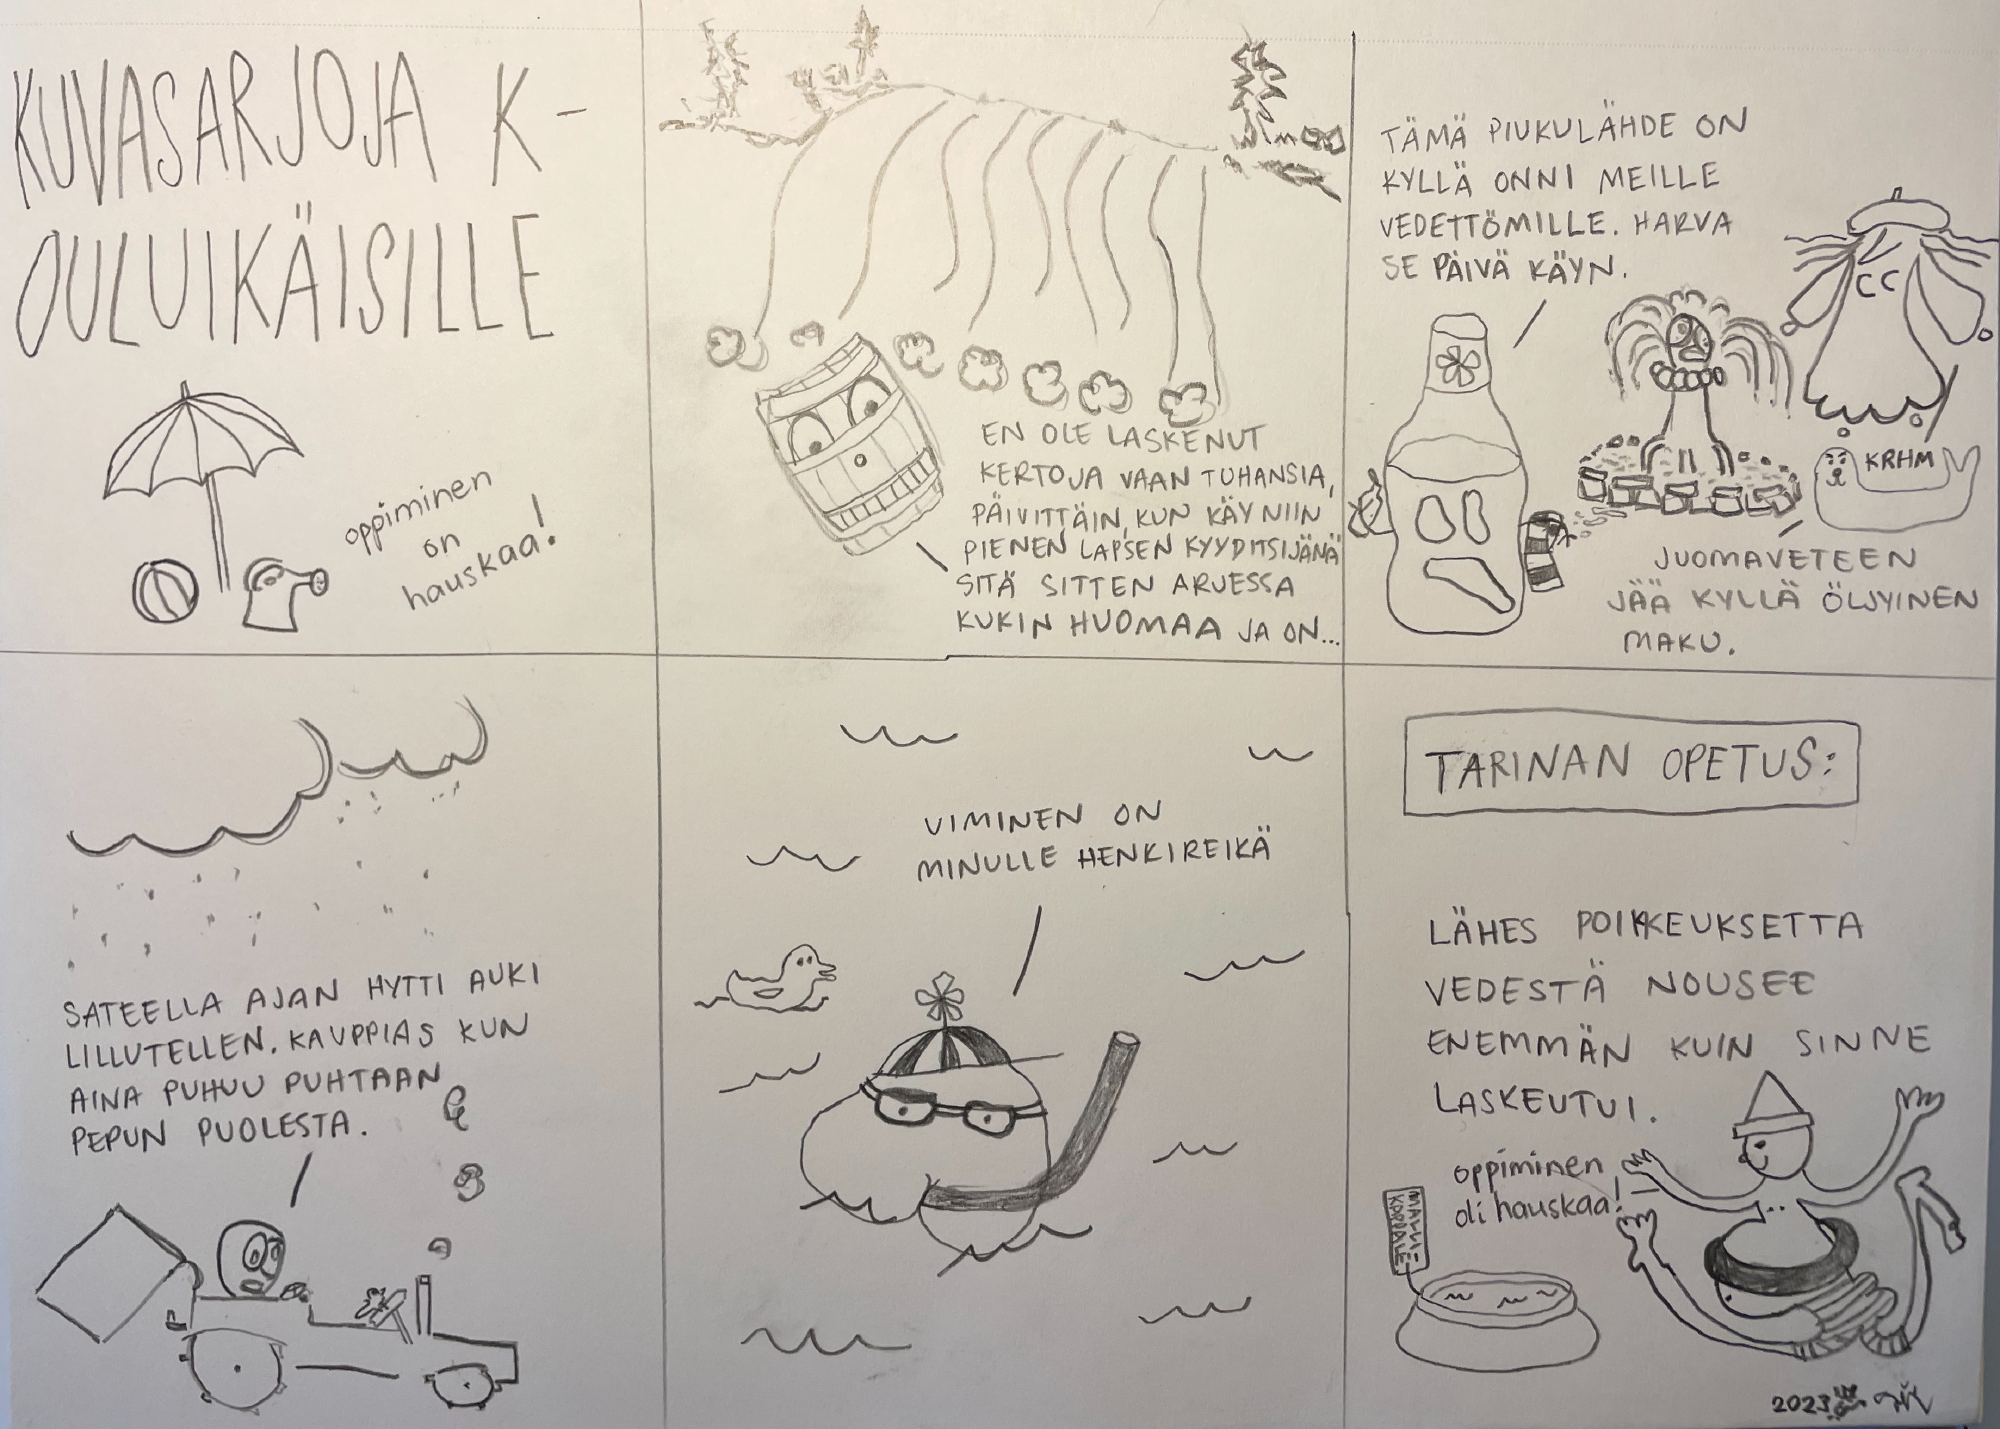 KUVASARJOJA K-
OULUIKÄISILLE
oppiminen
on
hauskaa!
EN OLE LASKENUT
KERTOJA VAAN TUHANSIA,
PÄIVITTÄIN, KUN KÄY NIIN
PIENEN LAPSEN KYYDITSIJÄNÄ
SITÄ SITTEN ARVESSA
KUKIN HUOMAA JA ON...
TÄMÄ PIUKULÄHDE ON
KYLLÄ ONNI MEILLE
VEDETTÖMILLE. HARVA
SE PÄIVÄ KÄYN.
KRHM
JUOMAVETEEN
JÄÄ KYLLÄ ÖLJYINEN
MAKU.
SATEELLA AJAN HYTTI AUKI
LILLUTELLEN. KAUPPIAS KUN
AINA PUHUU PUHTAAN
PEPUN PUOLESTA.
UIMINEN ON
MINULLE HENKIREIKÄ
TARINAN OPETUS:
LÄHES POIKKEUKSETTA
VEDESTÄ NOUSEE
ENEMMÄN KUIN SINNE
LASKEUTUI.
oppiminen
oli hauskaa!
MALLI-
KAPPALE
2023